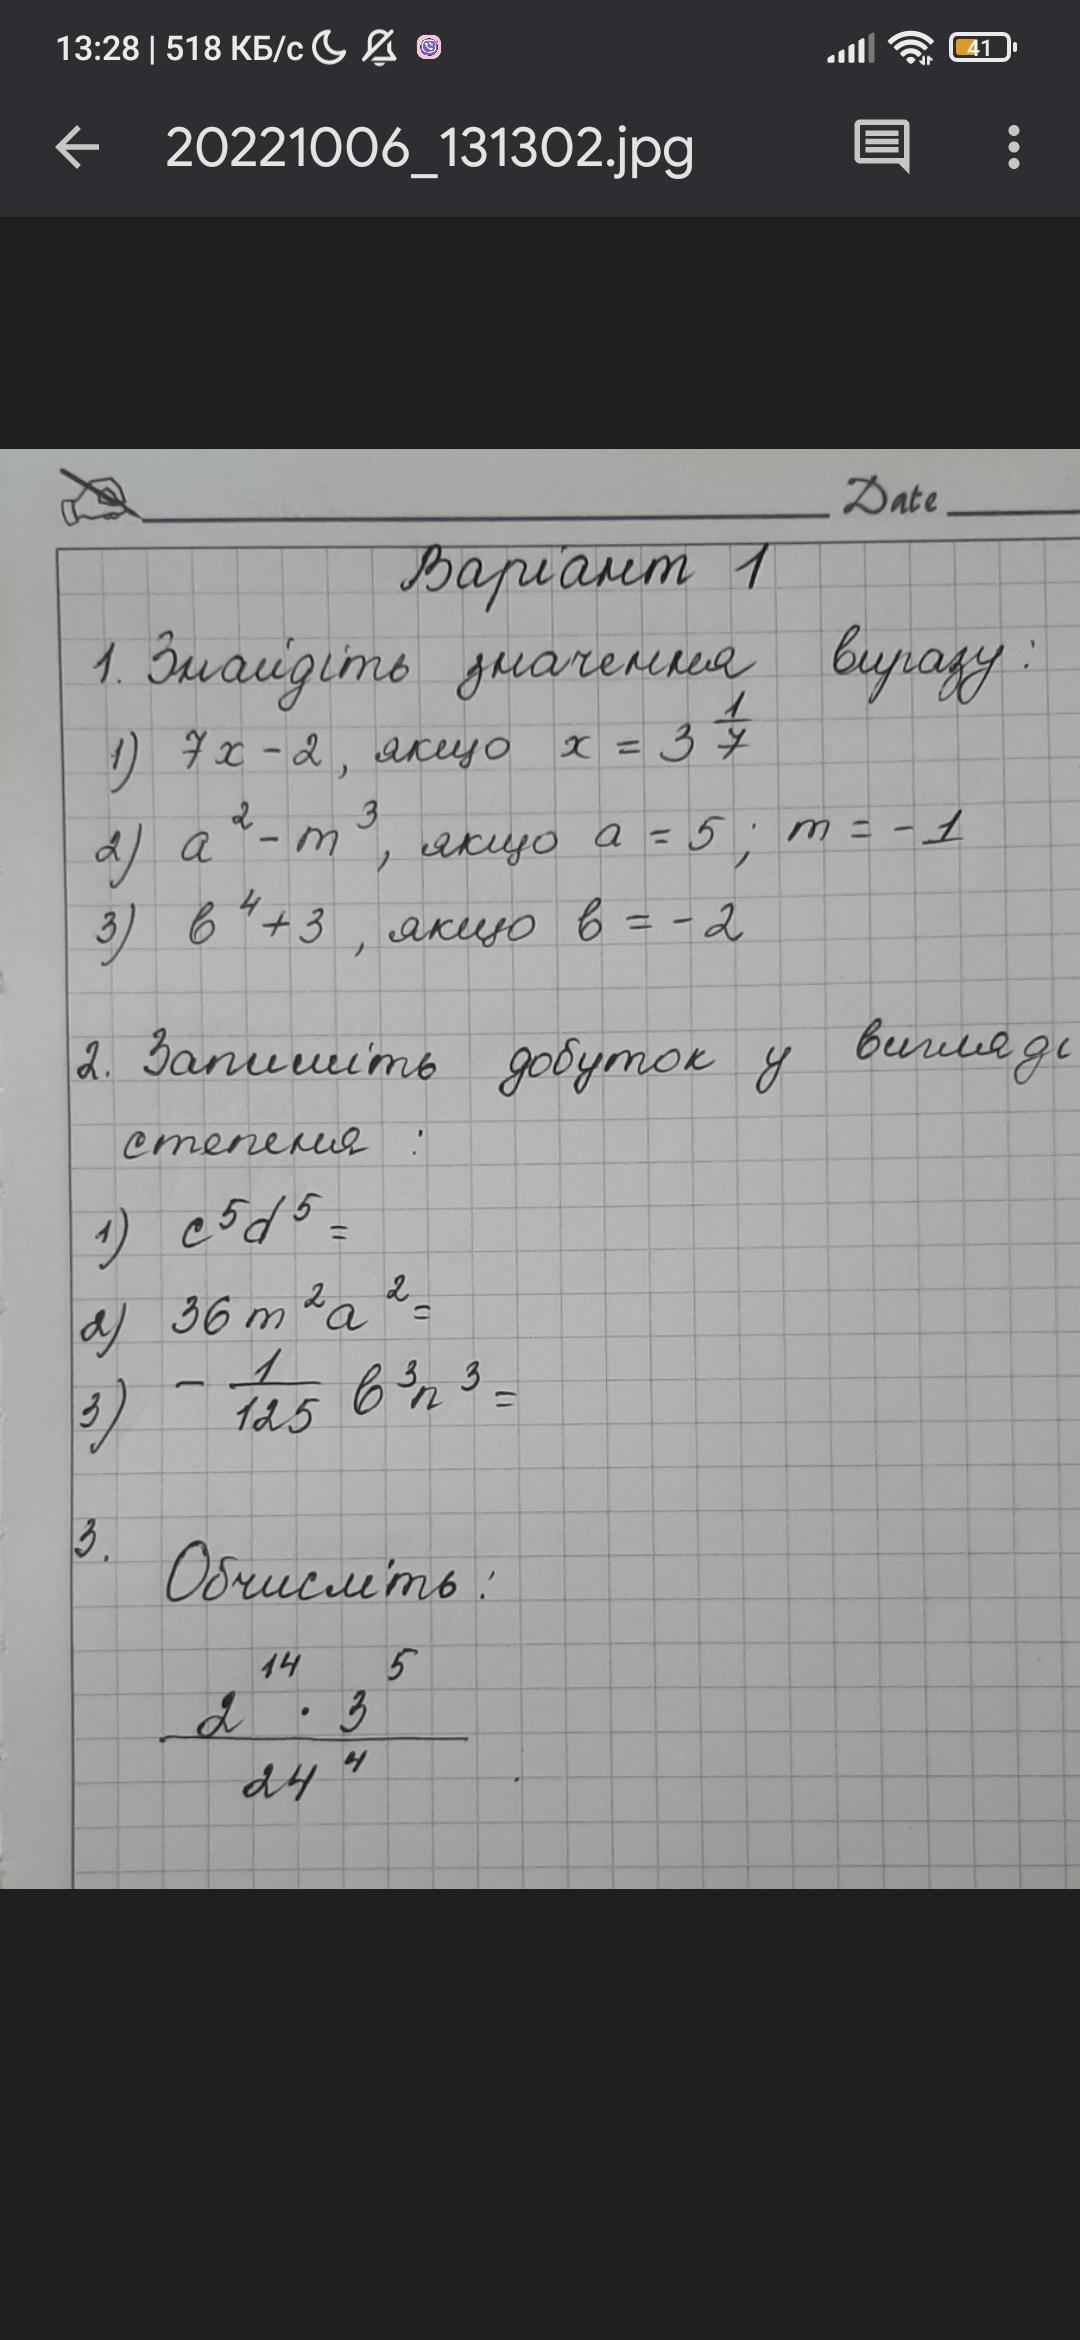 13:28 | 518 КБ/с 41
20221006_131302.jpg
Date
Варіант 1
1. Знайдіть значення виразу:
1) 7x - 2, якщо x = 3 1/7
2) a² - m³, якщо a = 5; m = -1
3) b⁴ + 3, якщо b = -2
2. Запишіть добуток у вигляді
степеня :
1) c⁵d⁵ =
2) 36m²a² =
3) - 1/125 b³n³ =
3.
Обчисліть:
2¹⁴ · 3⁵
24⁴